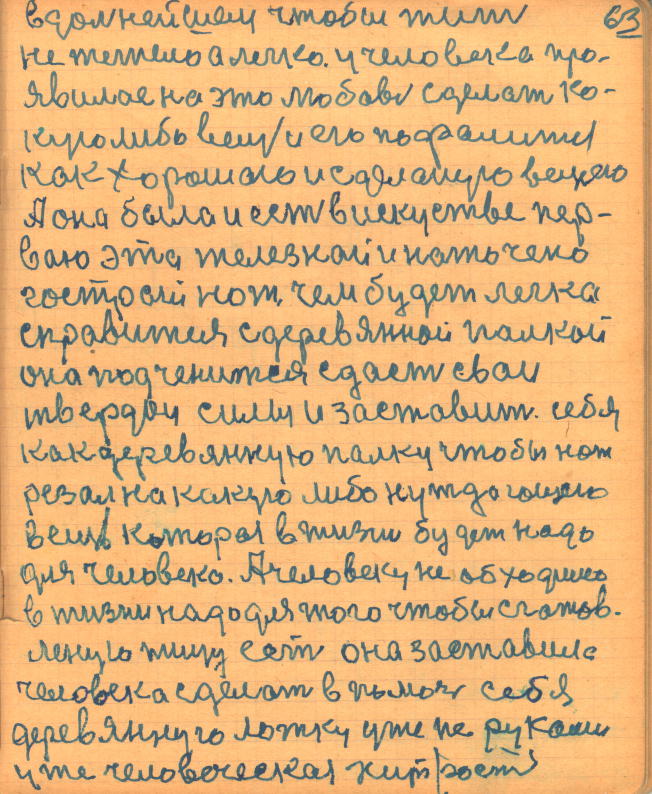 63
вдолнейшем чтобы жит
не тежело а легко. у человека про-
явилас на это любов сделат ко-
кую либо вещ и его
как хорошаю и сделаную вещею
А она была и ест в искустве пер-
ваю эта железной и наточено
гострой нож, чем будет легка
справится с деревянной палкой
она подченится сдаст сваи
твердаи силы и заставит. себя
как деревянную палку чтобы нож
резал на какую либо нуждающею
вещ котороя в жизни будет надо
для человека. А человеку не обходимо
в жизни надо для того чтобы сготов-
леную пищу сест она заставила
человека сделат в помоч себя
деревянную ложку уже не руками
уже человеческая хитрост